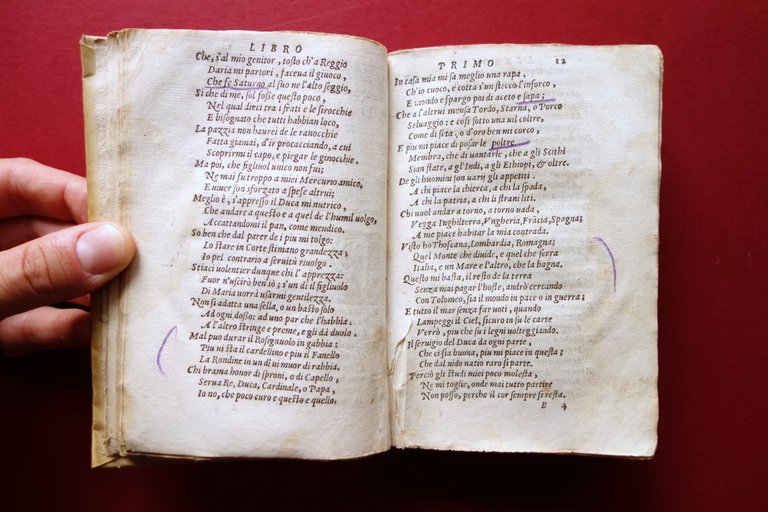 LIBRO
Che, s'al mio genitor, tosto ch'a Reggio
Daria mi partorì, faceua il giuoco,
Che fe Saturno al suo ne l'alto seggio,
Si che di me, sol fosse questo poco,
Nel qual dieci tra i frati e le sirocchie
E bisognato che tutti habbian loco,
La pazzia non haurei de le ranocchie
Fatta giamai, d'ir procacciando, a cui
Scoprirmi il capo, e piegar le ginocchie.
Ma poi, che figliuol unico non fui;
Ne mai fu troppo a miei Mercurio amico,
E viuer son sforzato a spese altrui;
Meglio è, s'appresso il Duca mi nutrico,
Che andare a questo e a quel de l'humil uolgo,
Accattandomi il pan, come mendico.
So ben che dal parer de i piu mi tolgo:
Lo stare in Corte stimano grandezza;
Io pel contrario a seruitù riuolgo.
Stiaci uolentier dunque chi l'apprezza:
Fuor n'uscirò ben'io; s'un dì il figliuolo
Di Maria uorrà usarmi gentilezza.
Non si adatta una sella, o un basto solo
Ad ogni dosso: ad uno par che l'habbia.
A l'altro stringe e preme, e gli dà duolo.
Mal puo durar il Rosignuolo in gabbia:
Piu ui sta il cardellino e piu il Fanello
La Rondine in un dì ui muor di rabbia.
Chi brama honor di sproni, o di Capello,
Serua Re, Duca, Cardinale, o Papa,
Io no, che poco curo e questo e quello.
PRIMO 12
In casa mia mi sa meglio una rapa,
Ch'io cuoco, e cotta s'un stecco l'inforco,
E mondo e spargo poi di aceto e sapa;
Che a l'altrui mensa Tordo, Starna, o Porco
Seluaggio: e così sotto una uil coltre,
Come di seta, o d'oro ben mi corco,
E piu mi piace di posar le poltre
Membra, che di uantarle, che a gli Scithi
Sian state, a gl'Indi, a gli Ethiopi, & oltre.
De gli huomini son varij gli appetiti.
A chi piace la chierca, a chi la spada,
A chi la patria, a chi li strani liti.
Chi vuol andar a torno, a torno vada,
Vegga Inghilterra, Vngheria, Frãcia, Spagna;
A me piace habitar la mia contrada.
Visto ho Thoscana, Lombardia, Romagna;
Quel Monte che diuide, e quel che serra
Italia, e un Mare e l'altro, che la bagna.
Questo mi basta, il resto de la terra
Senza mai pagar l'hoste, andrò cercando
Con Tolomeo, sia il mondo in pace o in guerra;
E tutto il mar senza far uoti, quando
Lampeggi il Ciel, sicuro in su le carte
Verrò, piu che su i legni uolteggiando.
Il seruigio del Duca da ogni parte,
Che ci sia buona, piu mi piace in questa;
Che dal nido natio raro si parte.
Perciò gli studi miei poco molesta,
Ne mi toglie, onde mai tutto partire
Non posso, perche il cor sempre si resta.
E 4